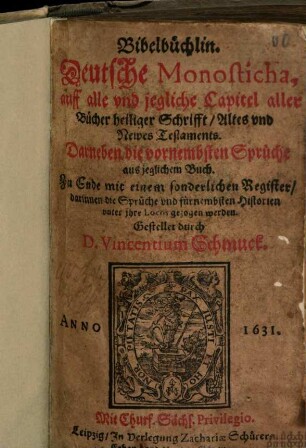 Bibelbüchlin.
Deutsche Monosticha,
auff alle vnd jegliche Capitel aller
Bücher heiliger Schrifft / Altes vnd
Newes Testaments.
Darneben die vornembsten Sprüche
aus jeglichem Buch.
Zu Ende mit einem sonderlichen Register /
darinnen die Sprüche vnd fürnembsten Historien
vnter jhre Locos gezogen werden.
Gestellet durch
D. Vincentium Schmuck.
ANNO 1631.
Mit Churf. Sächs. Privilegio.
Leipzig / In Verlegung Zachariæ Schürers